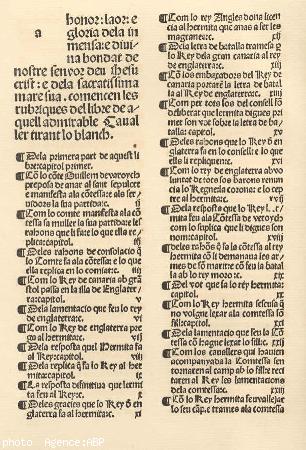 a
honor: laor: e
gloria dela in
mensa: e diui-
na bondat de
nostre senyor deu Jhesu
crist: e dela sacratissima
mare sua. comencen les
rubriques del libre de a-
quell admirable Caual
ler tirant lo blanch.
¶ Dela primera part de aquest li
bre: capitol primer.
¶ Com lo comte Guillem deuaroych
preposa de anar al sant sepulcre
e manifesta ala comtessa: e als ser-
uidors la sua partida: ij
¶ Com lo comte manifesta ala com
tessa sa muller la sua partida: e les
rahons que li fa e lo que ella re
plica: capitol. iij
¶ Deles rahons de consolacio q̃
lo Comte fa ala comtessa e lo que
ella replica en lo comiat: iiij
¶ Com lo Rey de canaria ab grã
stol passa en la illa de Englater
ra: capitol. v
¶ Dela lamentacio que feu lo rey
de englaterra: vi
¶ Com lo Rey de englaterra pre
ga al hermita: vij
¶ Dela resposta quel hermita fa
al Rey: capitol. viij
¶ Dela replica q̃ fa lo Rey al her
mita: capitol ix
¶ La resposta difinitiua que lermi
ta feu al Rey: x
¶ Deles gracies que lo Rey dẽ en
glaterra fa al hermita: xi
¶ Com lo rey Angles dona licen
cia al hermita que anas a fer les
magranes: xij
¶ Dela letra de batalla tramesa p
lo Rey dela gran canaria al rey
de englaterra: xiij
¶ Com los embaxadors del Rey de
canaria portarẽ la letra de batal
la al Rey de englaterra: xiiij
¶ Com per tots los del consell fõ
deliberat que lermita digues pri
mer son vot sobre la letra de ba-
talla: capitol. xv
¶ Deles rahons que lo Rey dẽ en
glaterra fa en lo consell: e lo que
ells li repliquen: xvi
¶ Com lo rey de englaterra de vo
luntat de tots los barons renun
cia lo Regne la corona: e lo cep
tre al hermita: xvij
¶ Dela resposta que lo Rey her
mita feu ala Comtessa de veroych
com lo suplica que li digues son
nom: capitol. xviij
¶ Deles rahõs q̃ fa la comtessa al rey
hermita com li demanana les ar-
mes de son marit com feu la batal
la ab lo rey moro: xix
¶ Del vot que fa lo rey hermita:
capitol: xx
¶ Com lo Rey hermita sesenyia q̃
no volgue lexar ala comtessa son
fill: capitol. xxi
¶ Dela lamentacio que feu la Com
tessa com hague lexar lo fill: xxij
¶ Com los cauallers qui hauien
acompanyada la Comtessa sen
tornaren al camp ab lo fill: e recita
ren al Rey les lamentacions
dela comtessa: xxiij
¶ Com lo Rey hermita feu vallejar
lo seu camp: e trames ala comtessa
photo Agence:ABP